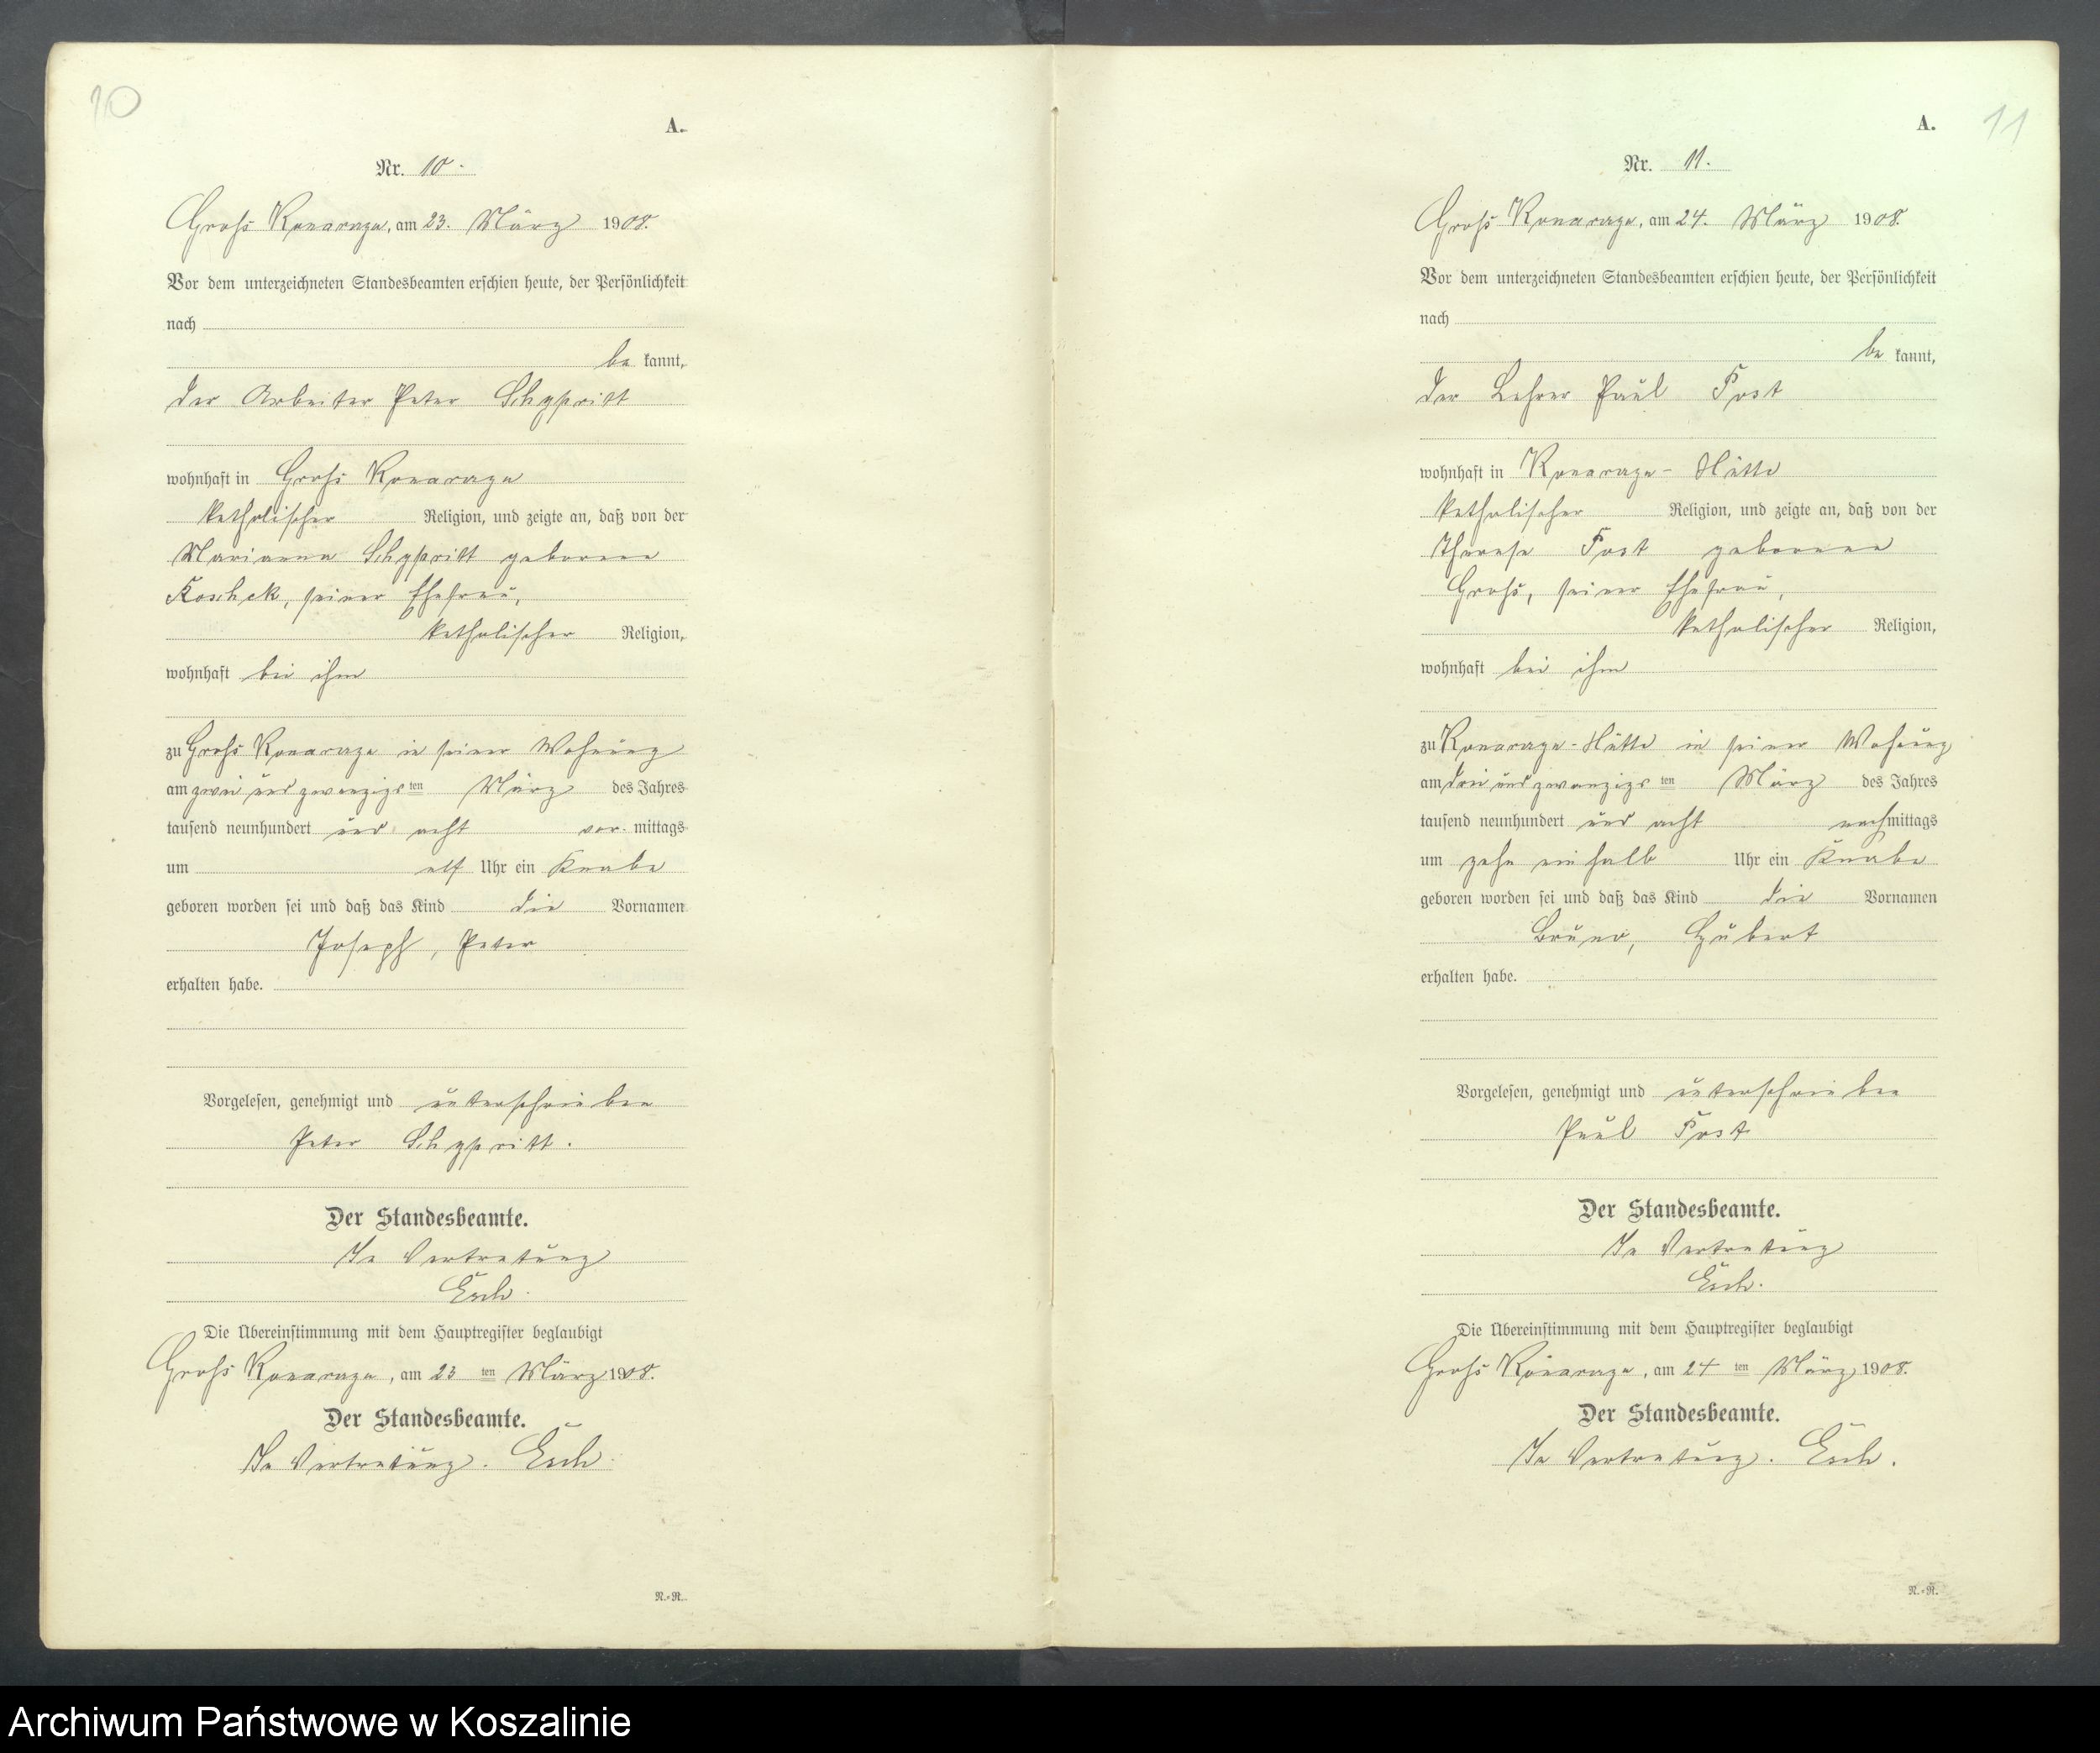 10
A.
Nr. 10.
Groß Konarczyn, am 23. März 1908.
Vor dem unterzeichneten Standesbeamten erschien heute, der Persönlichkeit
nach
be kannt,
der Arbeiter Peter
wohnhaft in Groß Konarczyn
katholischer Religion, und zeigte an, daß von der
Marianna geborene
seiner Ehefrau,
katholischer Religion,
wohnhaft bei ihm
zu Groß Konarczyn in seiner Wohnung
am zwei und zwanzigsten März des Jahres
tausend neunhundert und acht vor mittags
um elf Uhr ein Knabe
geboren worden sei und daß das Kind die Vornamen
Joseph, Peter
erhalten habe.
Vorgelesen, genehmigt und unterschrieben
Peter
Der Standesbeamte.
In Vertretung
Esch.
Die Übereinstimmung mit dem Hauptregister beglaubigt
Groß Konarczyn, am 23 ten März 1908.
Der Standesbeamte.
In Vertretung. Esch.
N.=R.
11
A.
Nr. 11.
Groß Konarczyn, am 24. März 1908.
Vor dem unterzeichneten Standesbeamten erschien heute, der Persönlichkeit
nach
be kannt,
der Lehrer Paul Post
wohnhaft in Konarczyn-Hütte
katholischer Religion, und zeigte an, daß von der
Therese Post geborene
Groß, seiner Ehefrau,
katholischer Religion,
wohnhaft bei ihm
zu Konarczyn-Hütte in seiner Wohnung
am drei und zwanzigsten März des Jahres
tausend neunhundert und acht nachmittags
um zehn einhalb Uhr ein Knabe
geboren worden sei und daß das Kind die Vornamen
Bruno, Hubert
erhalten habe.
Vorgelesen, genehmigt und unterschrieben
Paul Post
Der Standesbeamte.
In Vertretung
Esch.
Die Übereinstimmung mit dem Hauptregister beglaubigt
Groß Konarczyn, am 24 ten März 1908.
Der Standesbeamte.
In Vertretung. Esch.
N.=R.
Archiwum Państwowe w Koszalinie